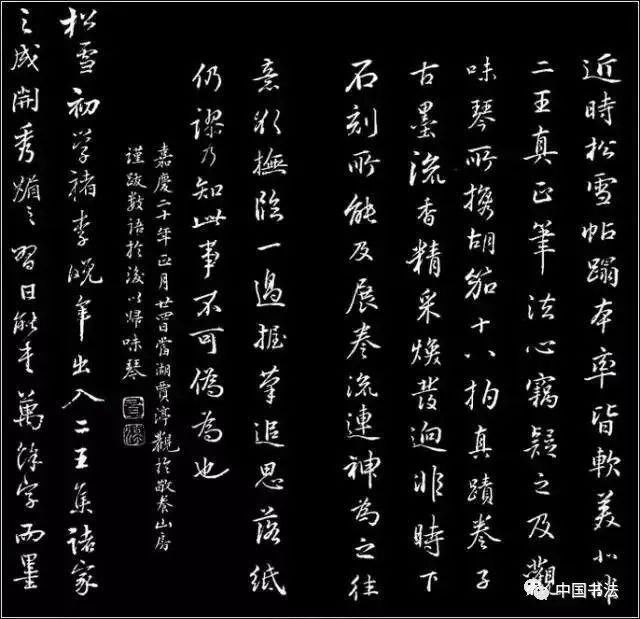 近時松雪帖蹋本率皆軟美不类
二王真正筆法心竊疑之及觀
味琴所攜胡笳十八拍真蹟卷子
古墨流香精采煥發迥非時下
石刻所能及展卷流連神為之往
意欲撫臨一過握筆追思落紙
仍謬乃知此事不可偽為也
嘉慶二十年正月廿四日當湖賈淳觀於敬養山房
謹跋數語於後以歸味琴
松雪初學褚李晚年出入二王集諸家
之成開秀媚之習日能書萬餘字而墨
中国书法